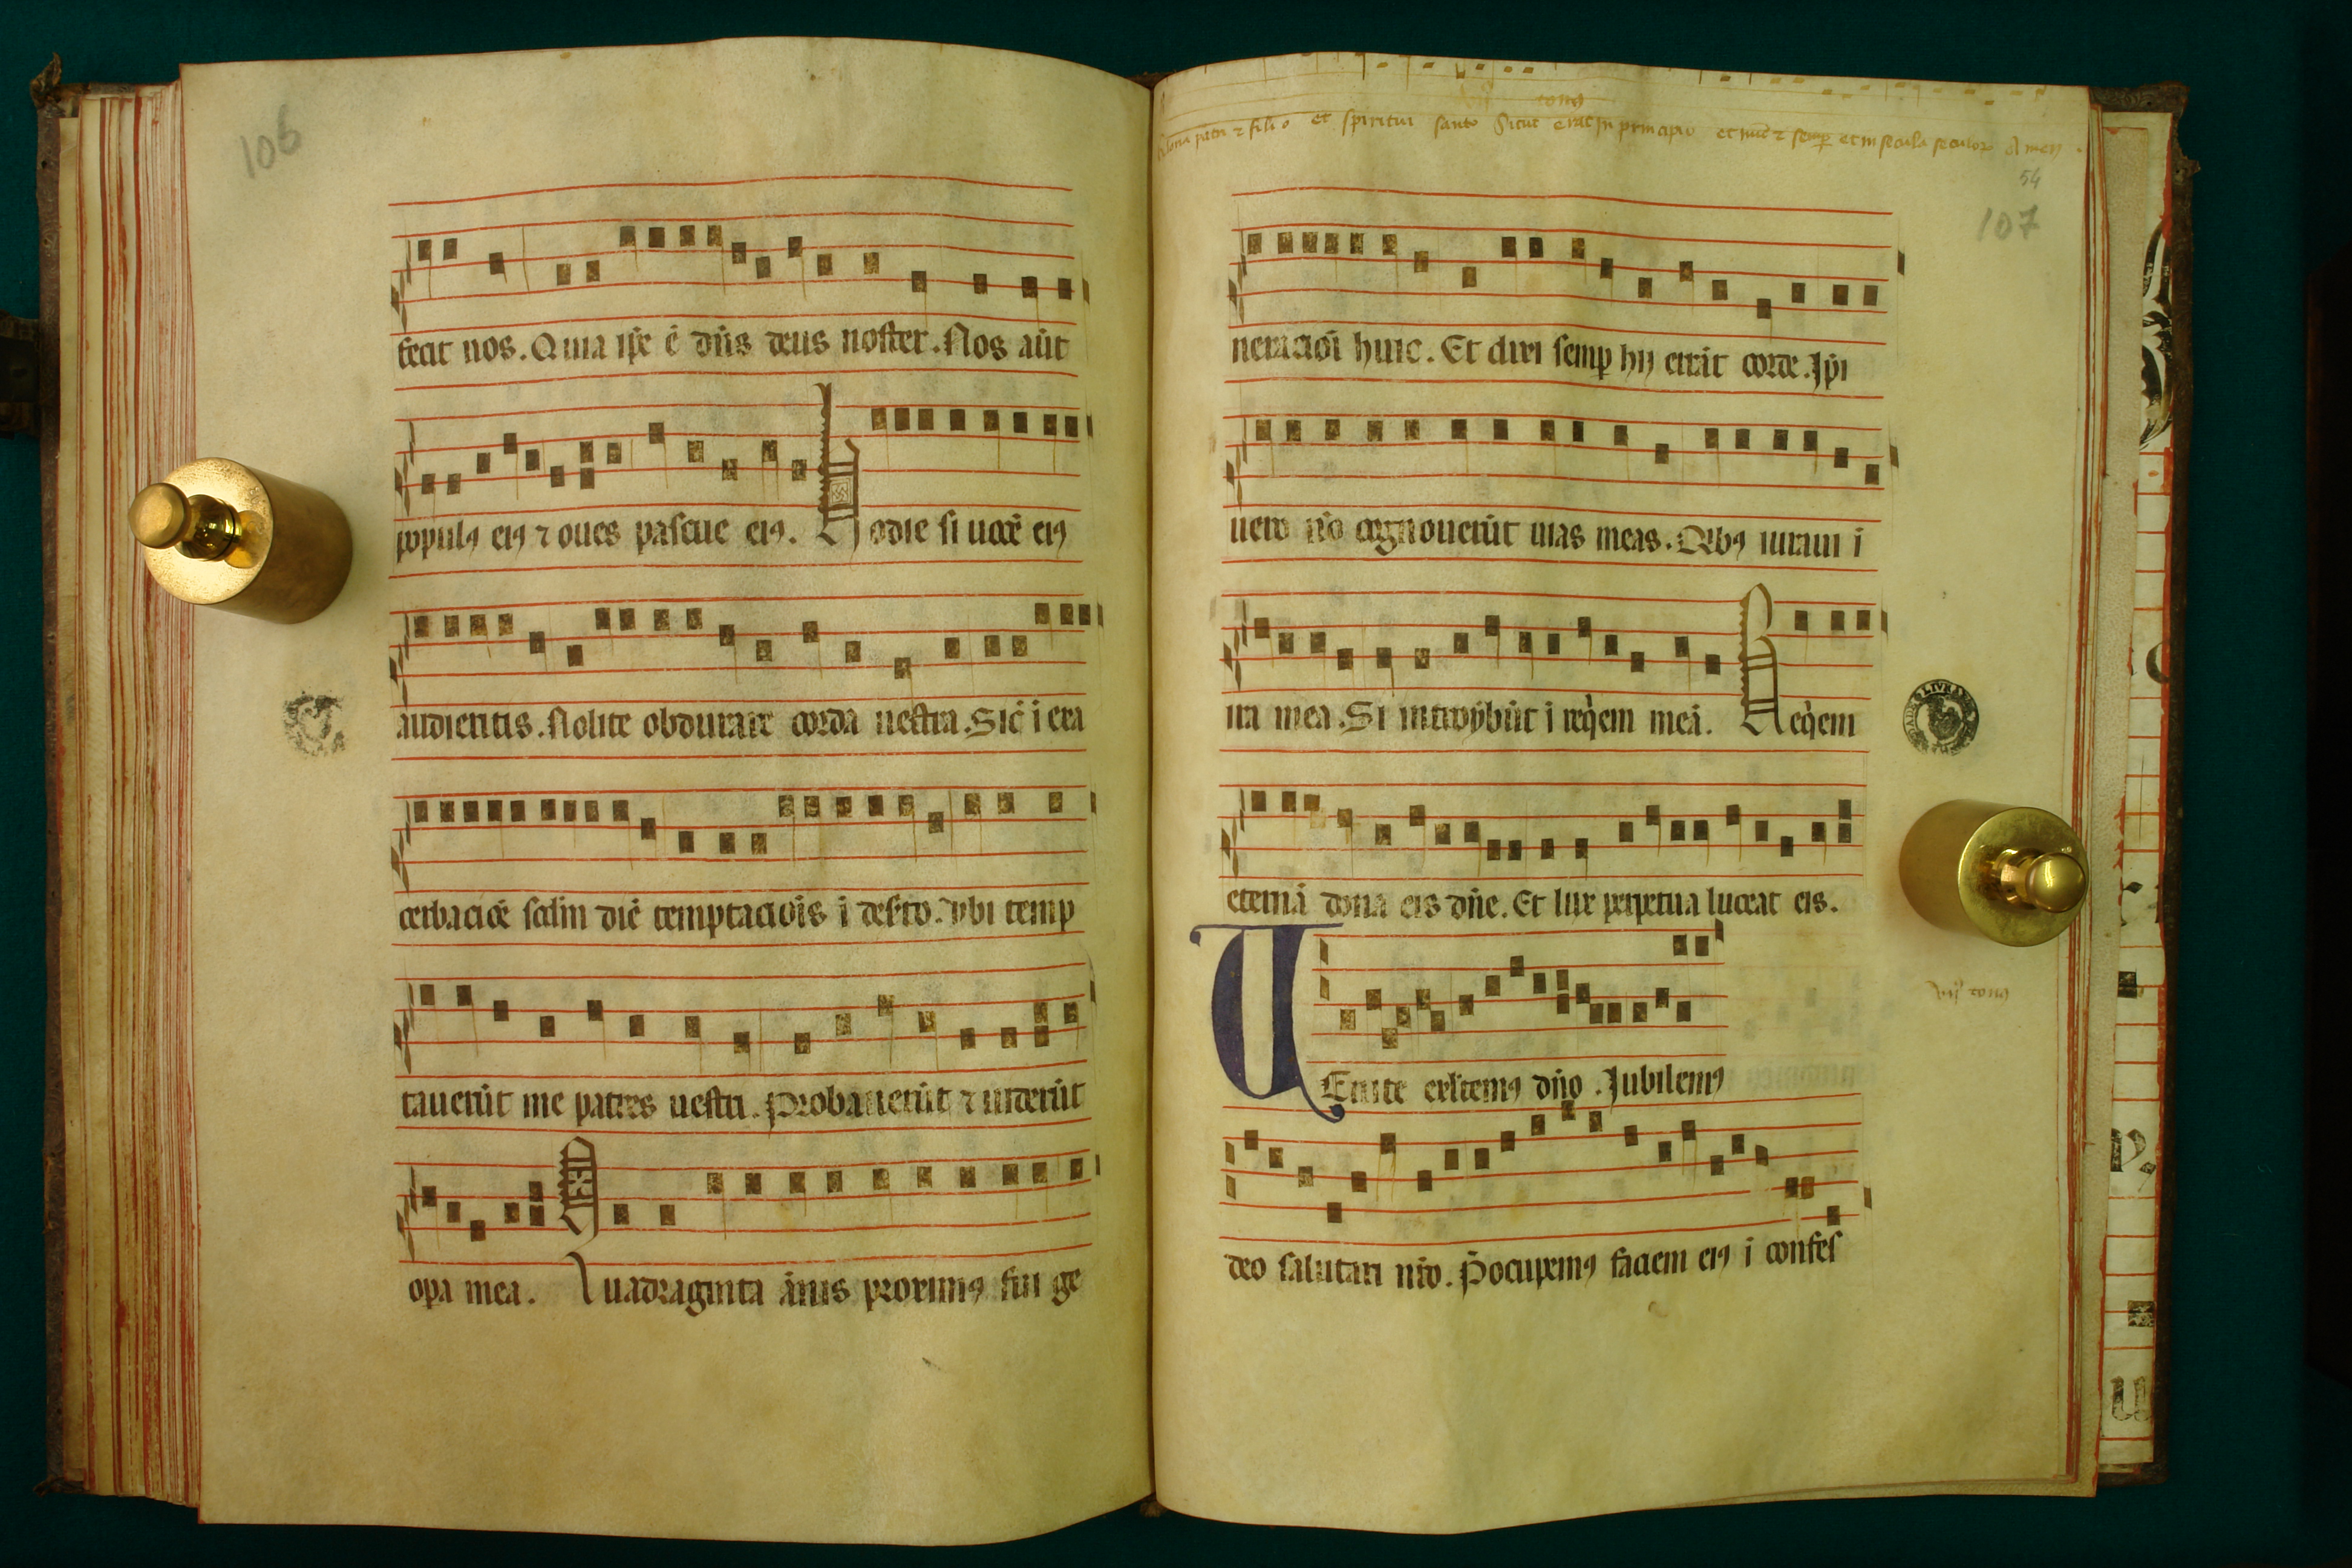 106
fecit nos. Quia ip̄e ē dn̄s deus noster. Nos aūt
populꝯ eiꝯ ⁊ oues pascue eiꝯ. Hodie si uocē eiꝯ
audieritis. Nolite obdurare corda uestra. Sic̄ ī exa
cerbaciōē scđm diē temptaciōis ī deẜto. ybi temp
tauerūt me patres uestri. Probauerūt ⁊ uiderūt
opa mea. Quadraginta ānis proximꝯ fui ge
et spiritui santo Sicut erat in principio et nūc ⁊ semꝑ et in secula seculoꝝ Amen
54
107
neracioī huic. Et dixi semꝑ hij errāt corde. Ip̄i
uero nō cognouerūt uias meas. Qībꝯ iuraui ī
ira mea. Si introybūt ī reqͥem meā. Reqͥem
eternā dona eis dn̄e. Et lux perpetua luceat eis.
UEnite exl̄temꝯ dn̄o. Jubilemꝯ
viij tonꝯ
deo salutari nr̄o. P̄ocupemꝯ faciem eiꝯ ī confes